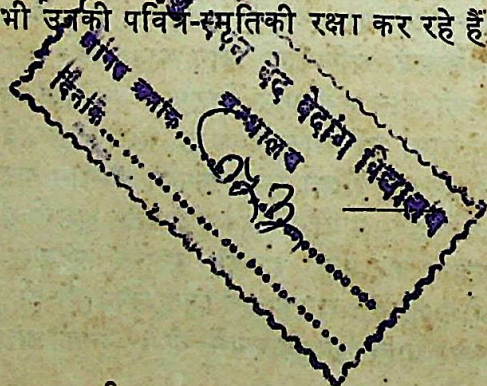 भी उनकी पवित्र-स्मृतिकी रक्षा कर रहे हैं
भवन वेद वेदांग विद्यालय
ग्रन्थालय
क्रमांक.....
दिनांक.....